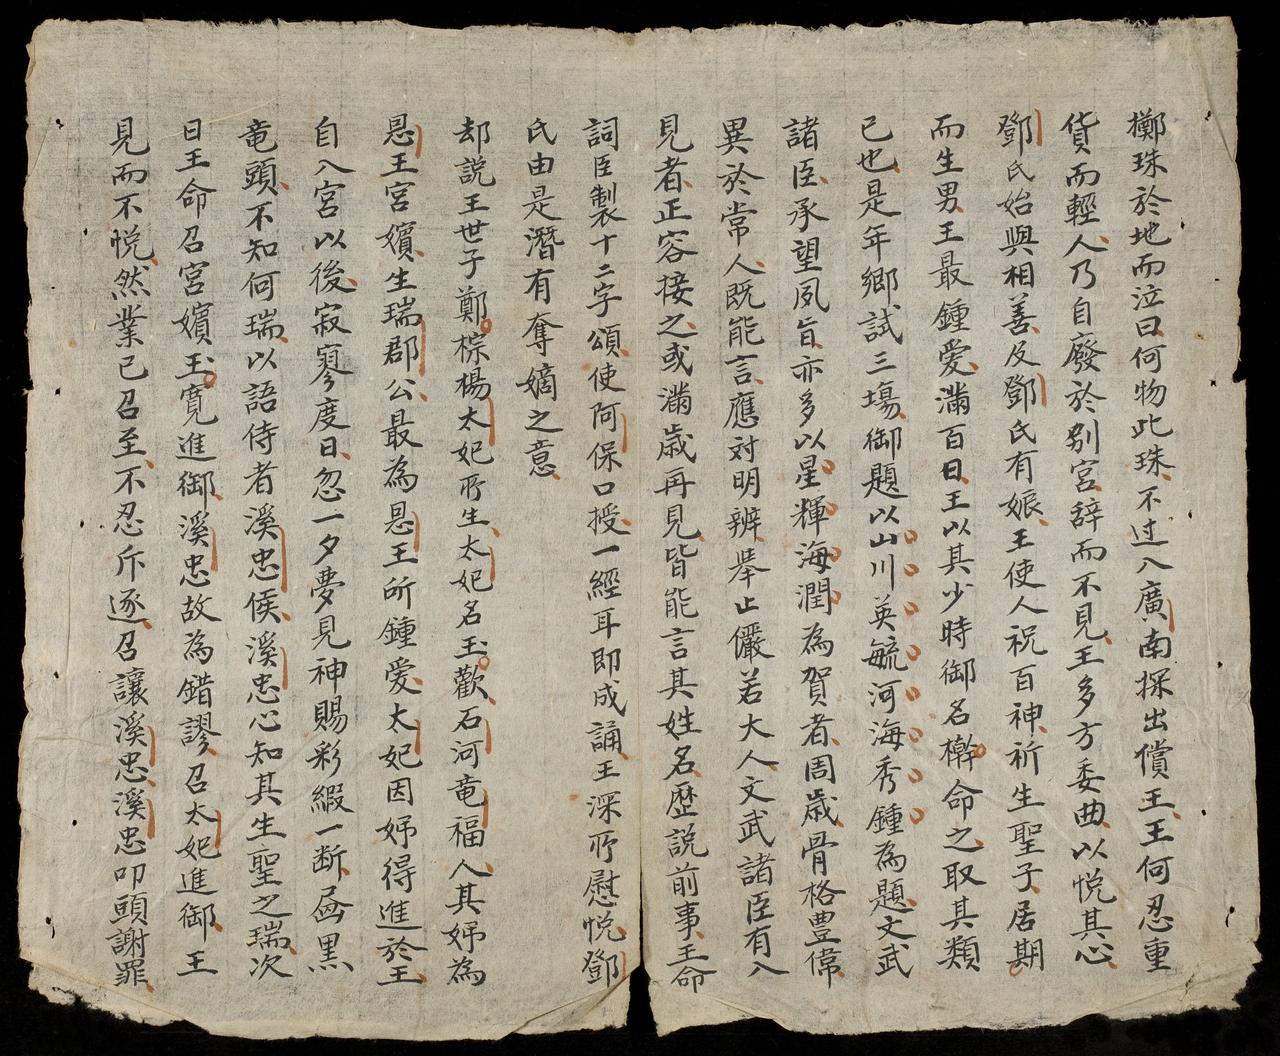 擲珠於地而泣曰何物此珠不过入廣南探出償王王何忍重
貨而輕人乃自廢於别宮辞而不見王多方委曲以悦其心
鄧氏始與相善及鄧氏有娠王使人祝百神祈生聖子居期
而生男王最鍾愛滿百日王以其少時御名檊命之取其類
已也是年鄉試三場御題以山川英毓河海秀鍾為題文武
諸臣承望夙旨亦多以星輝海潤為賀者周歲骨格豊偉
異於常人既能言應对明辨舉止儼若大人文武諸臣有入
見者正容接之或滿歲再見皆能言其姓名歷説前事王命
詞臣製十二字頌使阿保口授一經耳即成誦王深所慰悦鄧
氏由是潛有奪嫡之意
却説王世子鄭棕楊太妃所生太妃名玉歡石河竜福人其姊為
恩王宮嬪生瑞郡公最為恩王所鍾愛太妃因姊得進於王
自入宮以後寂寥度日忽一夕夢見神賜彩緞一断畵黑
竜頭不知何瑞以語侍者溪忠侯溪忠心知其生聖之瑞次
日王命召宮嬪玉寛進御溪忠故為錯謬召太妃進御王
見而不悦然業已召至不忍斥逐召讓溪忠溪忠叩頭謝罪